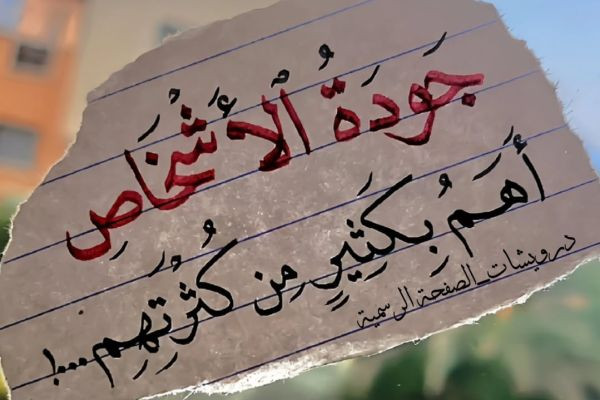 جَودَةُ الأشْخَاصِ
أَهَمُ بِكَثِيرٍ مِن كُثرُتِهِم ....!
درويشات_الصفحة الرسمية